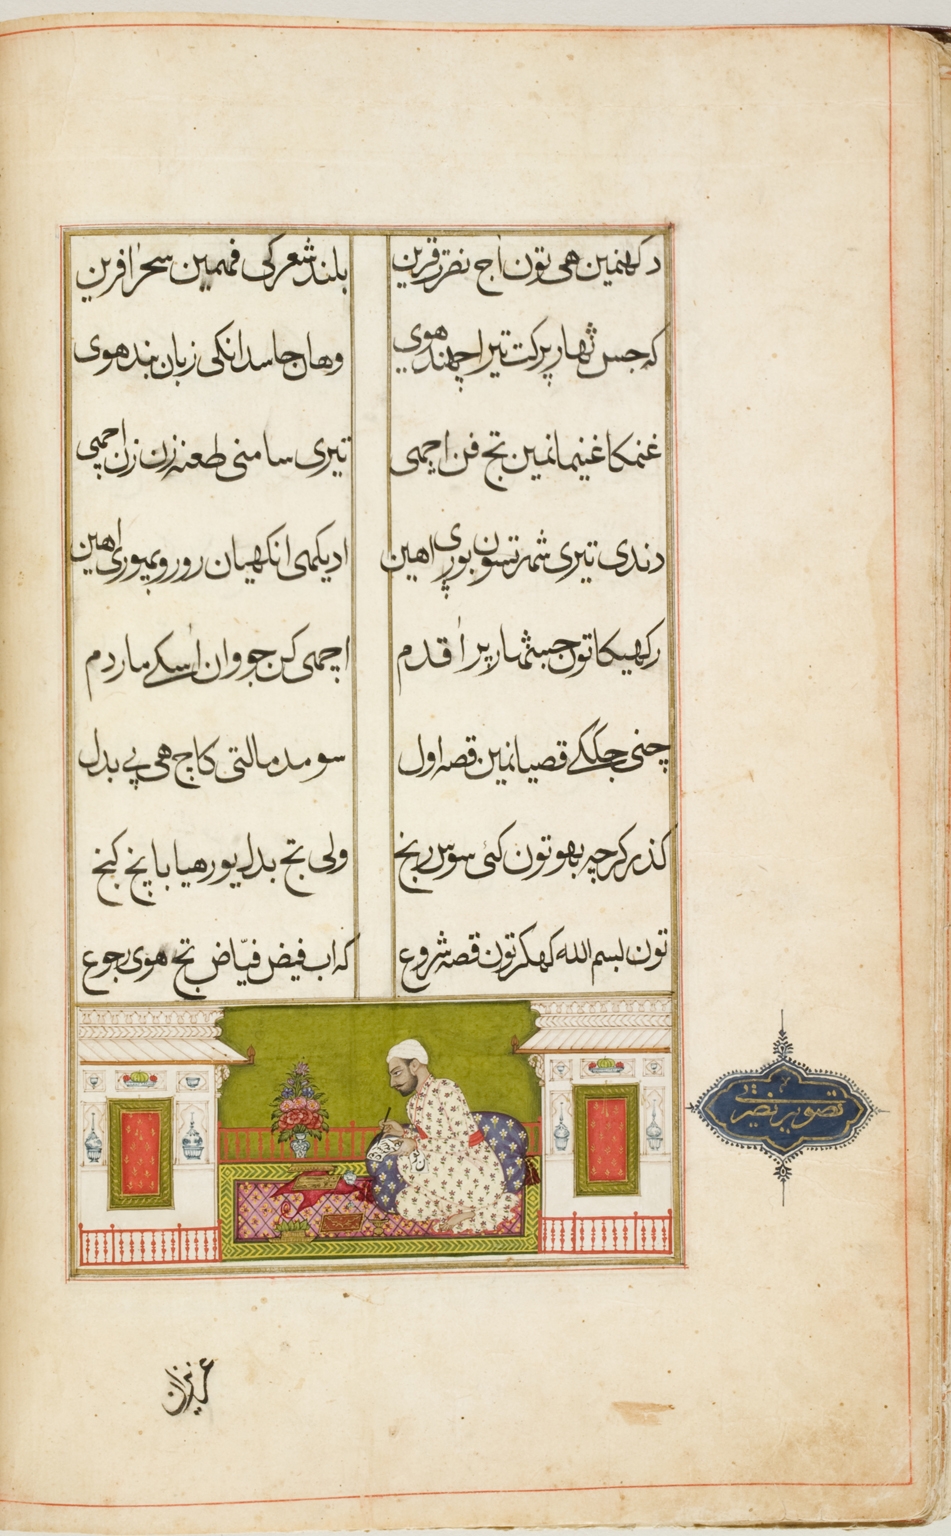 دکھنمین هی تون اج نصرت قرین بلند شعر کی فهمین سحر افرین
که جس ٹھار پر کت تیرا چھند هوی وهان حاسدانکی زبان بند هوی
غنمکا غنیمانمین تج فن اچھی تیری سامنی طعنه زن زن اچھی
دندی تیری شمرتسون پوری اهین ادیکھی انکھیان رور و اهین
رکھیکا تون جس ٹھار پر اقدم اچھی کن جو وان اسکے ماردم
چنی جگکے قصیانمین قصه اول سو مدمالتی کاج هی بے بدل
کذر کرچه بھو تون کئی سوس رنج ولی تج بدل یو رهیا با پنج کنج
تون بسم الله کھکر تون قصه شروع که اب فیض فیّاض تج هوی رجوع
تصویر نصرتی